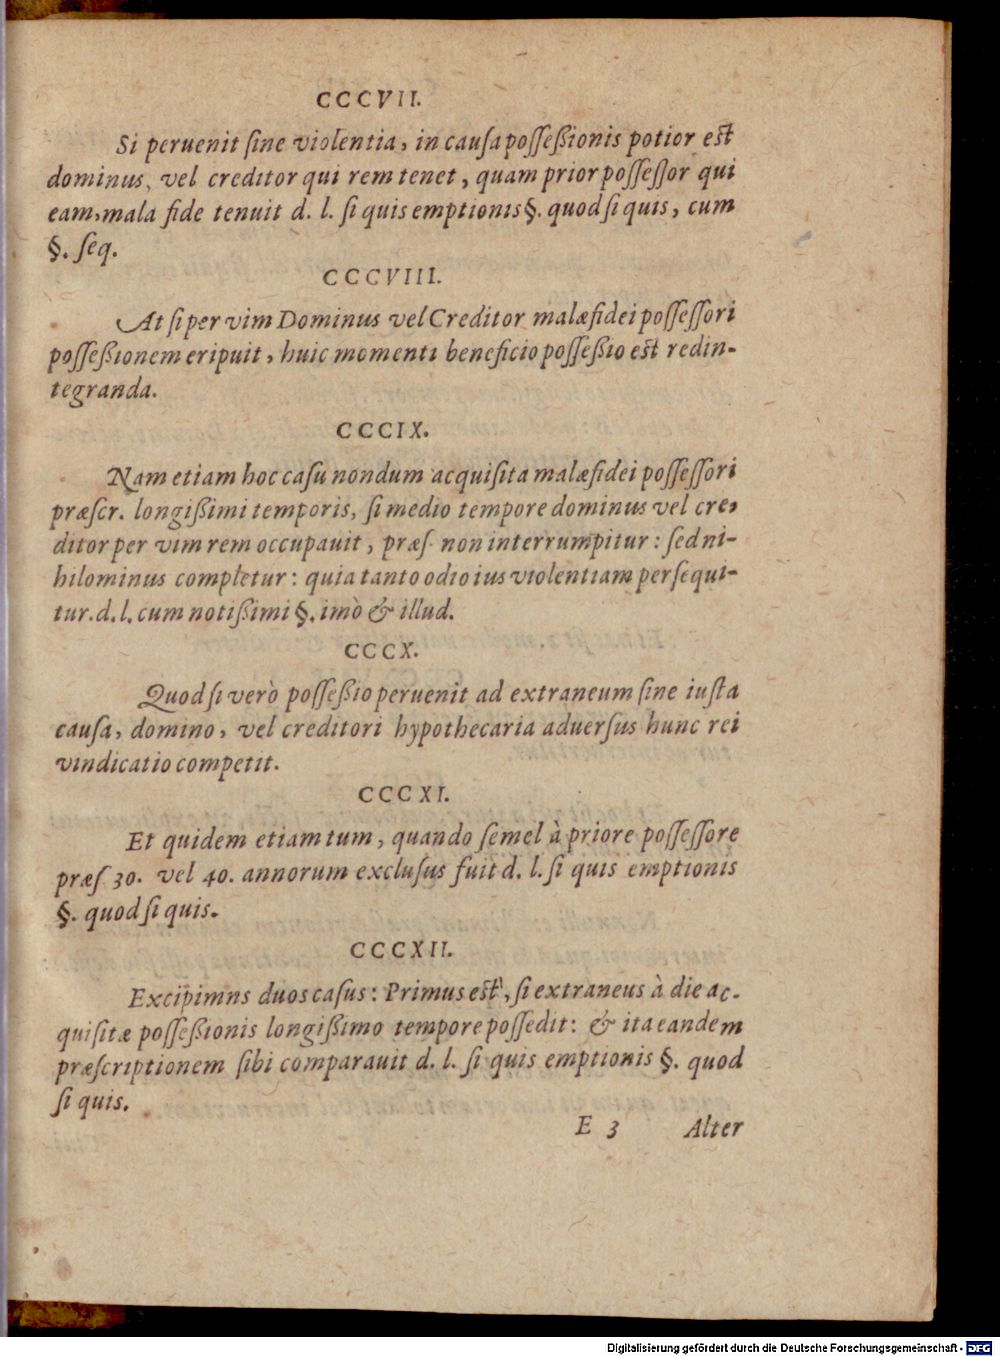 CCCVII.
Si peruenit ſine violentia, in cauſa poſſeßionis potior est
dominus, vel creditor qui rem tenet, quam prior poſſeſſor qui
eam, mala fide tenuit d. l. ſi quis emptionis §. quod ſi quis, cum
§. ſeq.
CCCVIII.
At ſi per vim Dominus vel Creditor malæfidei poſſeſſori
poſſeßionem eripuit, huic momenti beneficio poſſeßio est redin-
tegranda.
CCCIX.
Nam etiam hoc caſu nondum acquiſita malæfidei poſſeſſori
præſcr. longißimi temporis, ſi medio tempore dominus vel cre-
ditor per vim rem occupauit, præſ. non interrumpitur: ſed ni-
hilominus completur: quia tanto odio ius violentiam perſequi-
tur. d. l. cum notißimi §. imò & illud.
CCCX.
Quod ſi verò poſſeßio peruenit ad extraneum ſine iuſta
cauſa, domino, vel creditori hypothecaria aduerſus hunc rei
vindicatio competit.
CCCXI.
Et quidem etiam tum, quando ſemel à priore poſſeſſore
præſ 30. vel 40. annorum excluſus fuit d. l. ſi quis emptionis
§. quod ſi quis.
CCCXII.
Excipimns duos caſus: Primus est, ſi extraneus à die ac-
quiſitæ poſſeßionis longißimo tempore poſſedit: & ita eandem
præſcriptionem ſibi comparauit d. l. ſi quis emptionis §. quod
ſi quis.
E 3 Alter
Digitalisierung gefördert durch die Deutsche Forschungsgemeinschaft - DFG